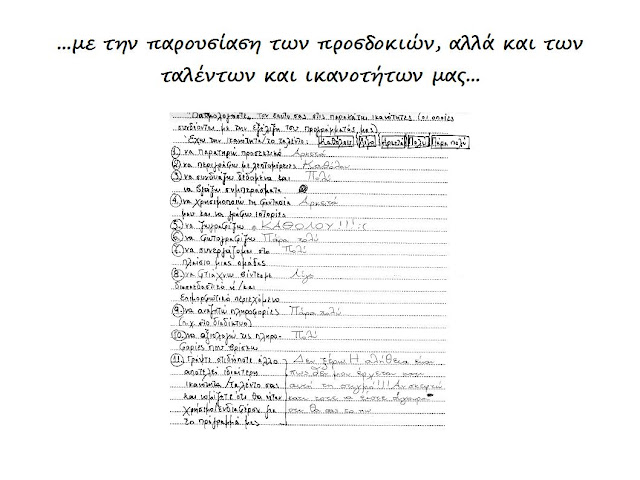 ...με την παρουσίαση των προσδοκιών, αλλά και των
ταλέντων και ικανοτήτων μας...
Βαθμολογήστε τον εαυτό σας στις παρακάτω ικανότητες (οι οποίες
συνδέονται με την εξέλιξη του προγράμματός μας)
Έχω την ικανότητα/το ταλέντο: Καθόλου Λίγο Αρκετά Πολύ Πάρα πολύ
1. να παρατηρώ προσεκτικά Αρκετά
2. να περιγράφω με λεπτομέρειες Καθόλου
3. να συνδυάζω δεδομένα και Πολύ
να βγάζω συμπεράσματα
4. να χρησιμοποιώ τη φαντασία Αρκετά
μου και να γράφω ιστορίες
5. να ζωγραφίζω ΚΑΘΟΛΟΥ!!! :(
6. να φωτογραφίζω Πάρα πολύ
7. να συνεργάζομαι στο Πολύ
πλαίσιο μιας ομάδας
8. να φτιάχνω βίντεο με Λίγο
διασκεδαστικό ή/και
επιμορφωτικό περιεχόμενο
9. να αναζητώ πληροφορίες Πάρα πολύ
(π.χ. στο διαδίκτυο)
10. να αξιολογώ τις πληρο- Πολύ
φορίες που βρίσκω
11. Γράψτε οτιδήποτε άλλο Δεν ξέρω! Η αλήθεια είναι
αποτελεί ιδιαίτερη πως δεν μου έρχεται κάτι
ικανότητα/ταλέντο σας αυτή τη στιγμή!!! Αν σκεφτώ
και νομίζετε ότι θα ήταν κάτι τότε να είστε σίγουροι
χρήσιμο/ενδιαφέρον για ότι θα σας το πω
το πρόγραμμά μας